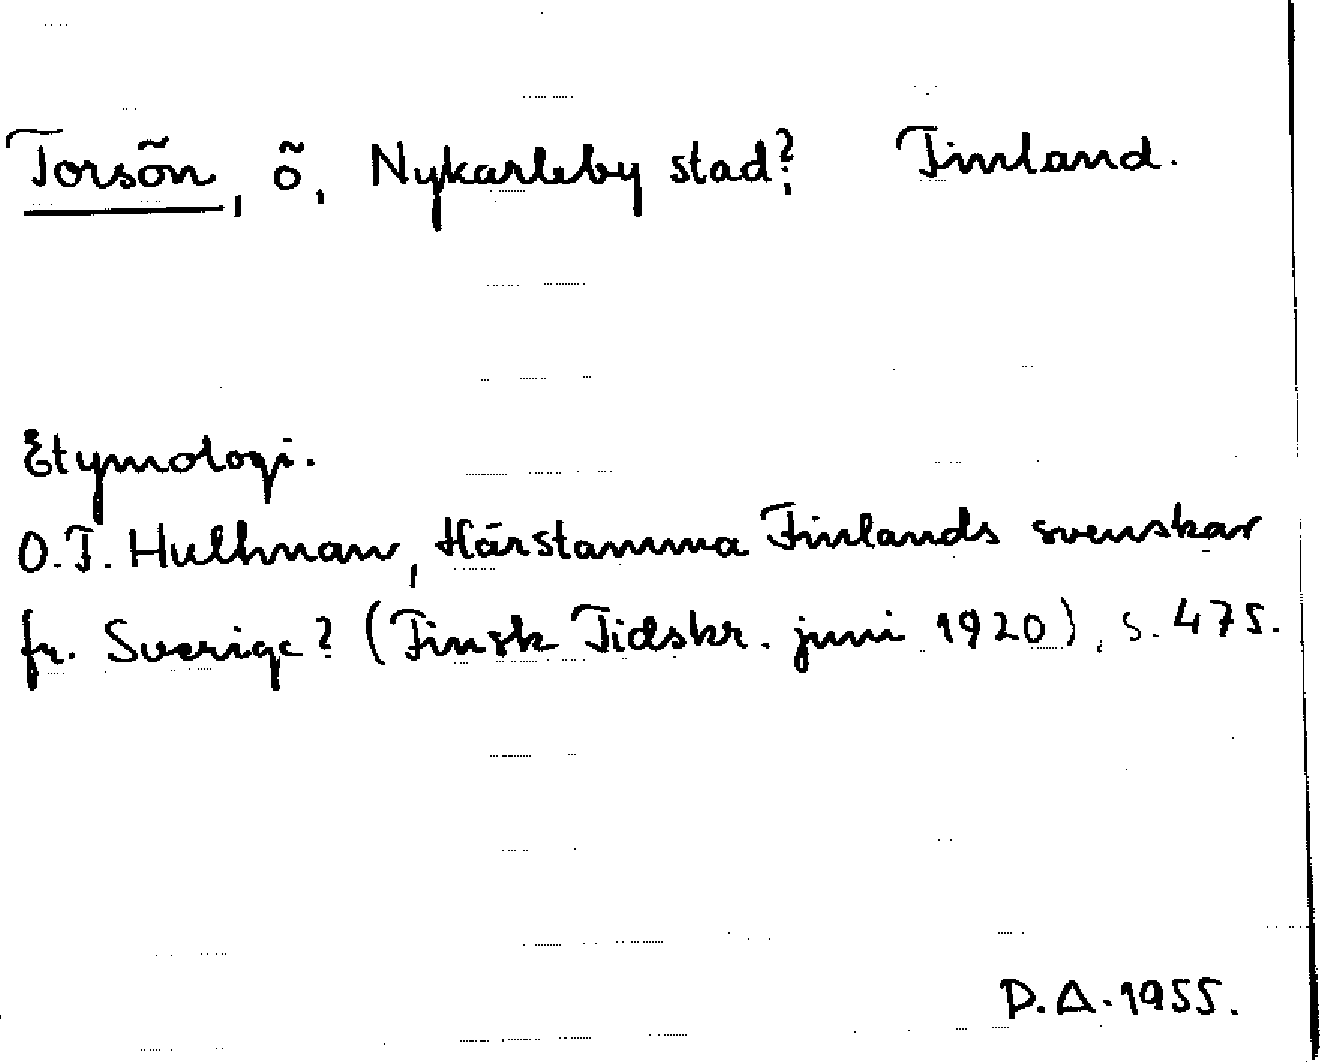 Torsön, ö, Nykarleby stad? Finland.
Etymologi.
O.F. Hultman, Härstamma Finlands svenskar
fr. Sverige? (Finsk Tidskr. juni 1920), s. 475.
D.A. 1955.